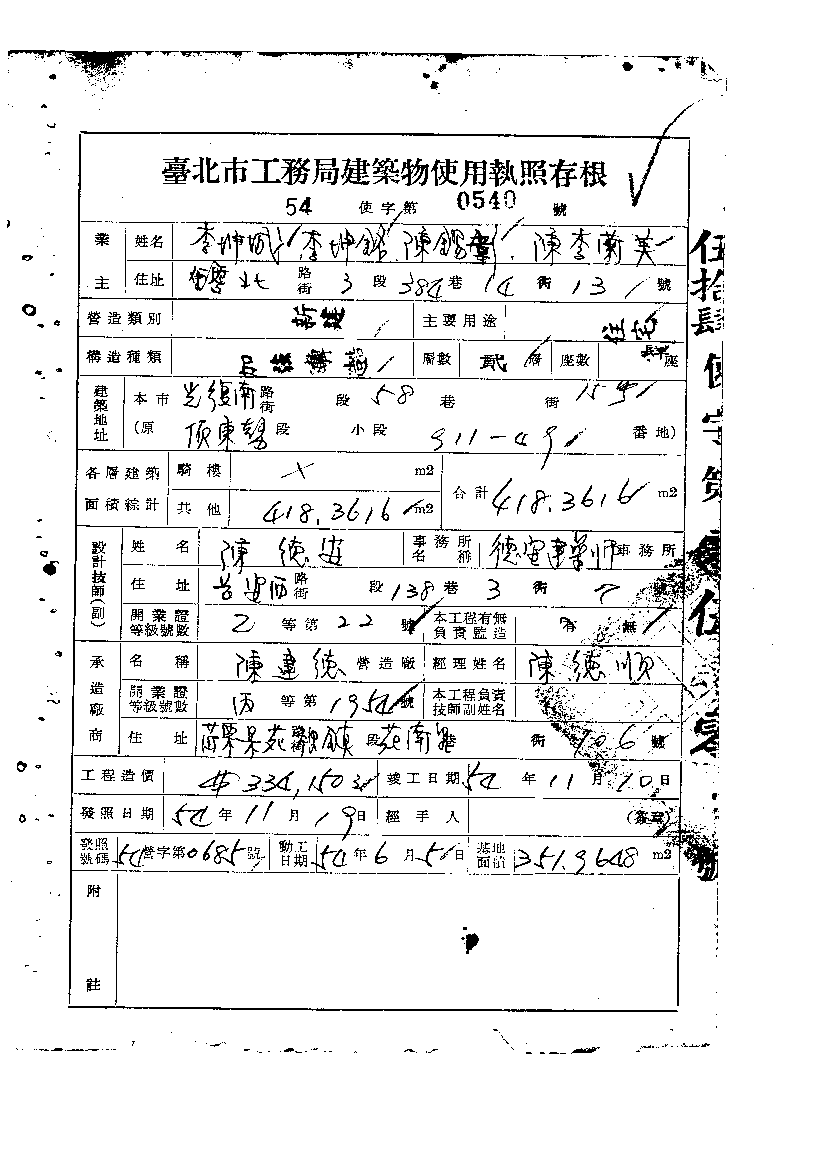 臺北市工務局建築物使用執照存根
54 使字第 0540 號
業主 姓名 李坤 李坤 陳 陳李蘭美
住址 北 路街 3 段 384 巷 14 街 13 號
營造類別 新建 主要用途 住宅
構造種類 加強磚 層數 貳 層 座數 座
建築地址 本市 光復南 路街 段 58 巷 街 號
(原 頂東勢 段 小段 911-49 番地)
各層建築面積綜計 騎樓 × m2 合計 418.3616 m2
其他 418.3616 m2
設計技師(副) 姓名 陳德 事務所名稱 德 建築師 事務所
住址 西 路街 段 138 巷 3 街 7 號
開業證等級號數 乙 等第 22 號 本工程有無負責監造 有 無
承造廠商 名稱 陳建德 營造廠 經理姓名 陳德順
開業證等級號數 丙 等第 1954 號 本工程負責技師副姓名
住址 苗栗 苑 鎮 段 苑南里 巷 街 106 號
工程造價 334,150 竣工日期 54 年 11 月 10 日
發照日期 54 年 11 月 19 日 經手人 (簽章)
發照號碼 54 營字第 0685 號 動工日期 54 年 6 月 5 日 基地面積 351.9648 m2
附註
伍拾肆 使字第 伍 零 號